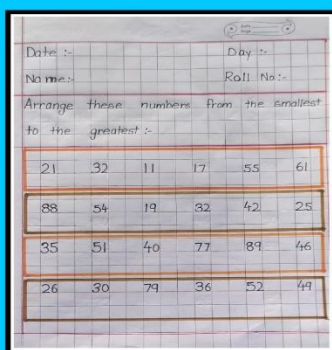 Date :- Day :-
Name:- Roll No:-
Arrange these numbers from the smallest
to the greatest :-
21 32 11 17 55 61
88 54 19 32 42 25
35 51 40 77 89 46
26 30 79 36 52 49